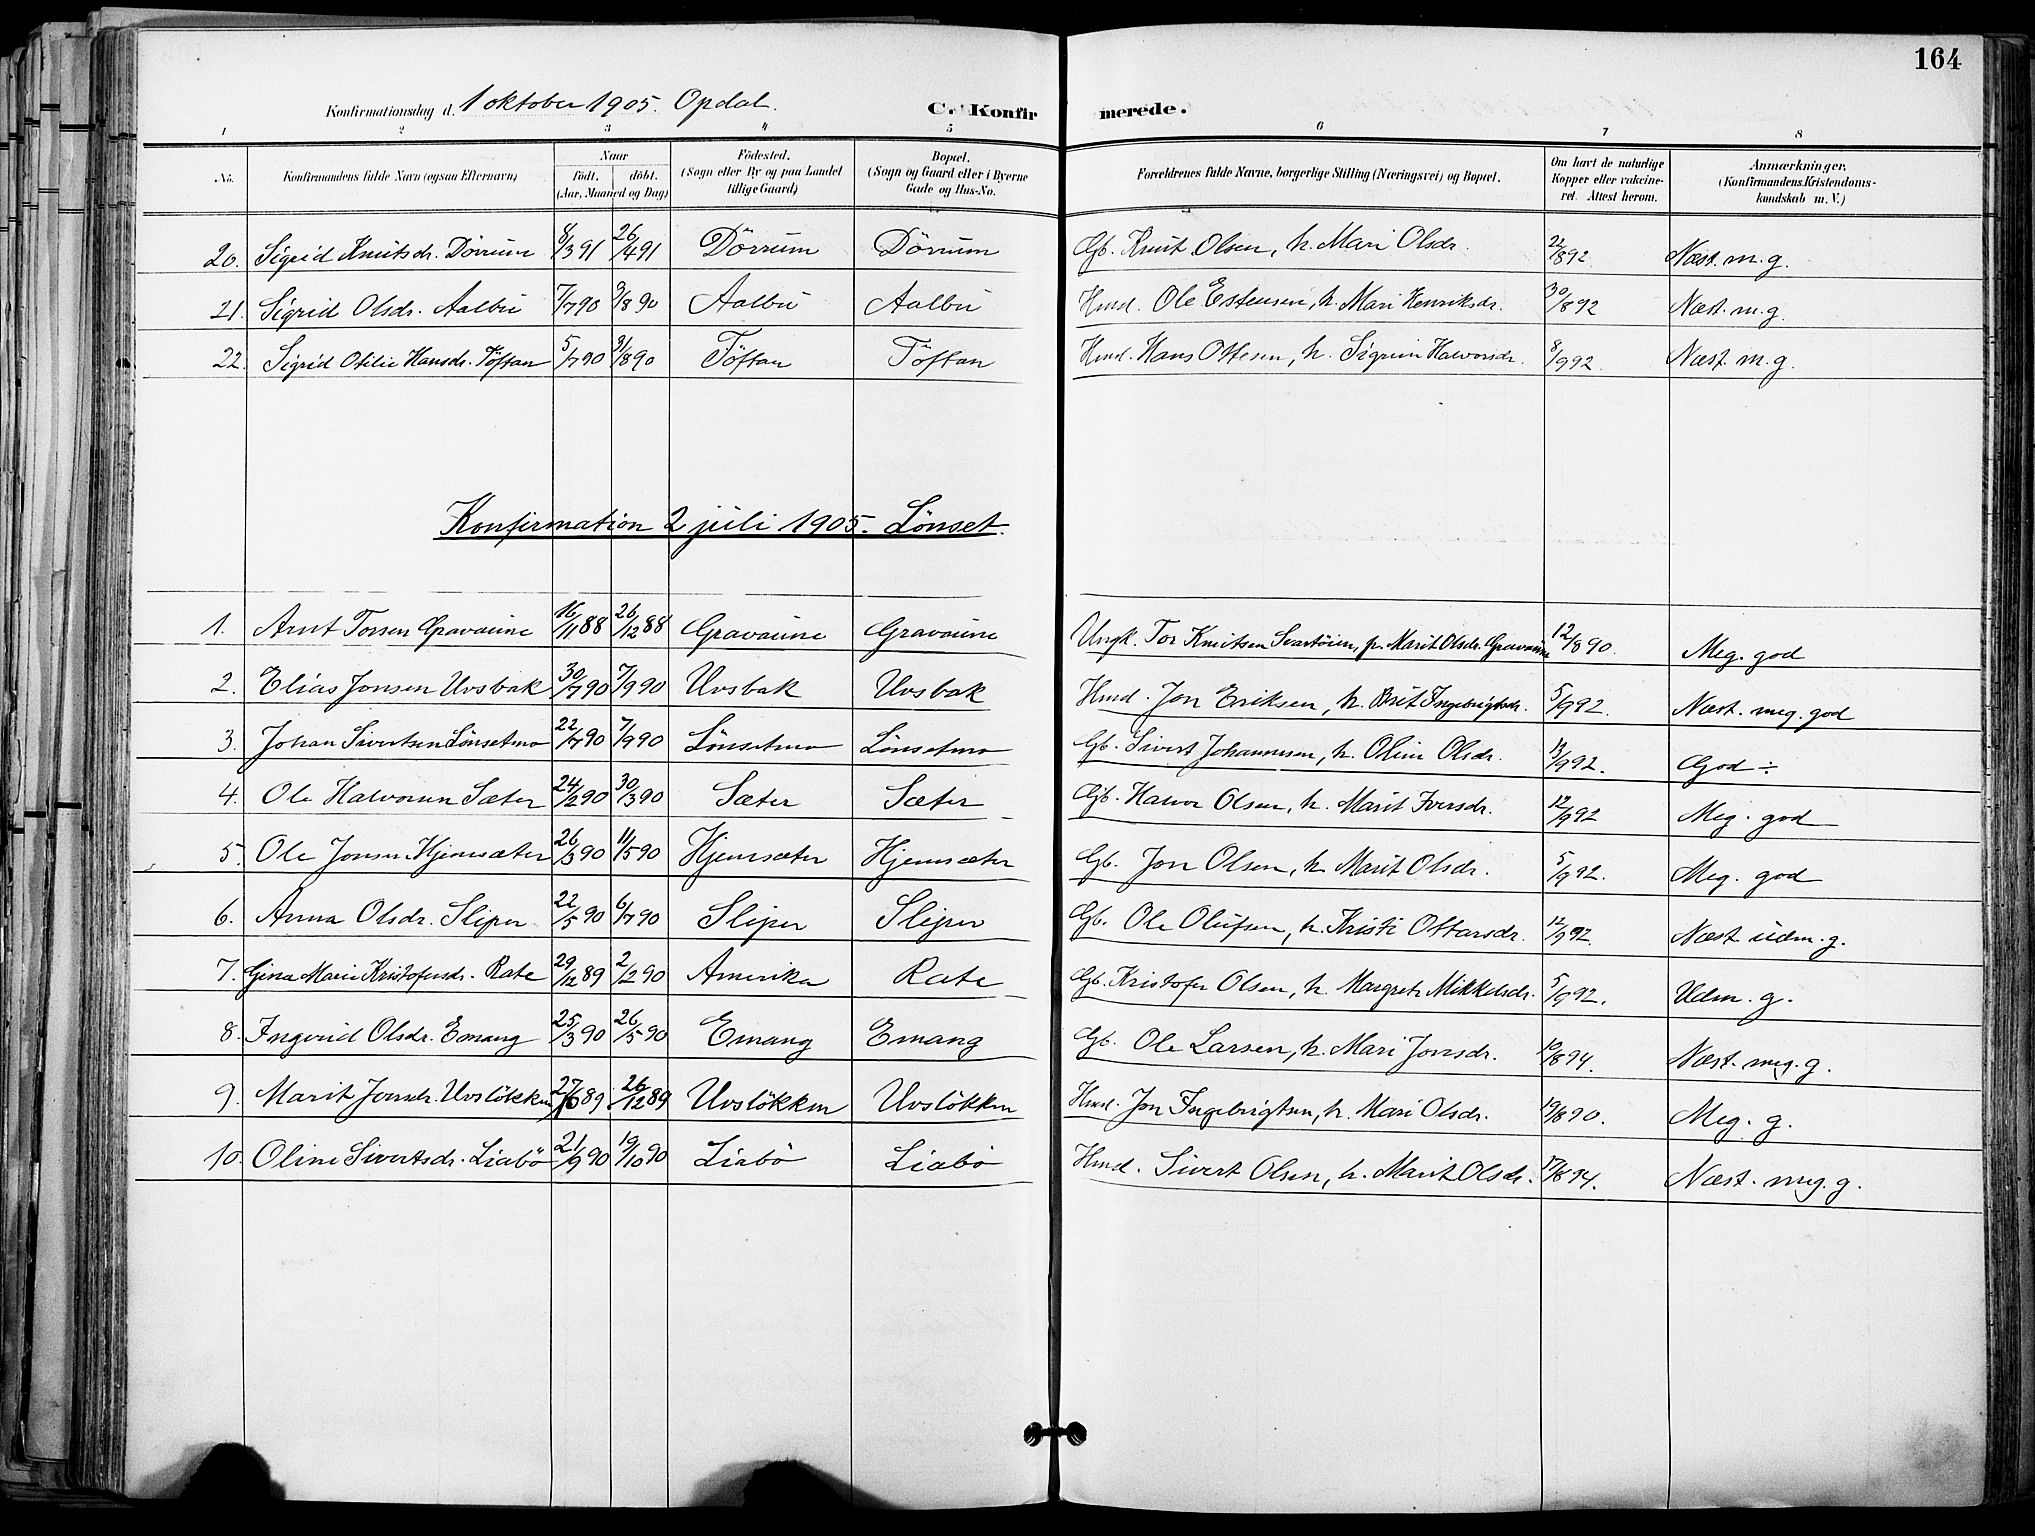 164
Konfirmationsdag d. 1 oktober 1905. Opdal. C. Konfirmerede.
1 2 3 4 5 6 7 8
No. Konfirmandens fulde Navn (ogsaa Efternavn) Naar født. døbt. (Aar, Maaned og Dag) Fødested. (Sogn eller By og paa Landet tillige Gaard) Bopæl. (Sogn og Gaard eller i Byerne Gade og Hus-No. Forældrenes fulde Navne, borgerlige Stilling (Næringsvei) og Bopæl. Om havt de naturlige Kopper eller vakcineret. Attest herom. Anmærkninger, (Konfirmandens Kristendomskundskab m. V.)
20. Sigrid Knutsdr. Dörrum 8/3 91 26/4 91 Dörrum Dörrum Gb. Knut Olsen, h. Mari Olsdr. 22/8 92 Næst. m. g.
21. Sigrid Olsdr. Aalbu 7/7 90 3/8 90 Aalbu Aalbu Hmd. Ole Estensen, h. Mari Henriksdr. 30/8 92 Næst. m. g.
22. Sigrid Otilie Hansdr. Töftan 5/7 90 31/8 90 Töftan Töftan Hmd. Hans Ottesen, h. Sigrun Halvorsdr. 8/9 92. Næst. m. g.
Konfirmation 2 juli 1905. Lönset.
1. Arnt Torsen Gravaune 16/11 88 26/12 88 Gravaune Gravaune Ungk. Tor Knutsen Svartöien, p. Marit Olsdr. Gravaune 12/8 90. Meg. god
2. Elias Jonsen Uvsbak 30/7 90 7/9 90 Uvsbak Uvsbak Hmd. Jon Eriksen, h. Brit Ingebrigtsdr. 5/9 92. Næst. meg. god
3. Johan Sivertsen Lönsetmo 22/7 90 7/9 90 Lönsetmo Lönsetmo Gb. Sivert Johannesen, h. Oline Olsdr. 13/9 92. God ÷
4. Ole Halvorsen Sæter 24/2 90 30/3 90 Sæter Sæter Gb. Halvor Olsen, h. Marit Iversdr. 12/9 92 Meg. god
5. Ole Jonsen Hjemsæter 26/3 90 11/5 90 Hjemsæter Hjemsæter Gb. Jon Olsen, h. Marit Olsdr. 5/9 92. Meg. god
6. Anna Olsdr. Sliper 22/5 90 6/7 90 Sliper Sliper Gb. Ole Olufsen, h. Kristi Ottarsdr. 12/9 92 Næst udm. g.
7. Gina Marie Kristofersdr. Rate 29/12 89 2/2 90 Amerika Rate Gb. Kristofer Olsen, h. Margrete Mikkelsdr. 5/9 92. Udm. g.
8. Ingerid Olsdr. Emang 25/3 90 26/5 90 Emang Emang Gb. Ole Larsen, h. Mari Jonsdr. 10/8 94. Næst. meg. g.
9. Marit Jonsdr. Uvslökken 89 26/12 89 Uvslökken Uvslökken Hmd. Jon Ingebrigtsen, h. Mari Olsdr. 19/8 90. Meg. g.
10. Oline Sivertsdr. Liabö 21/9 90 19/10 90 Liabö Liabö Hmd. Sivert Olsen, h. Marit Olsdr. 17/8 94. Næst. meg. g.